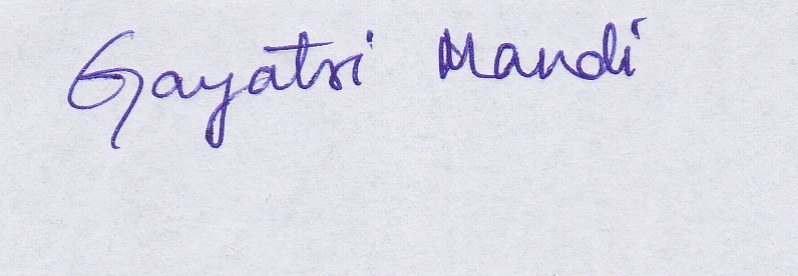 Gayatri Mandi